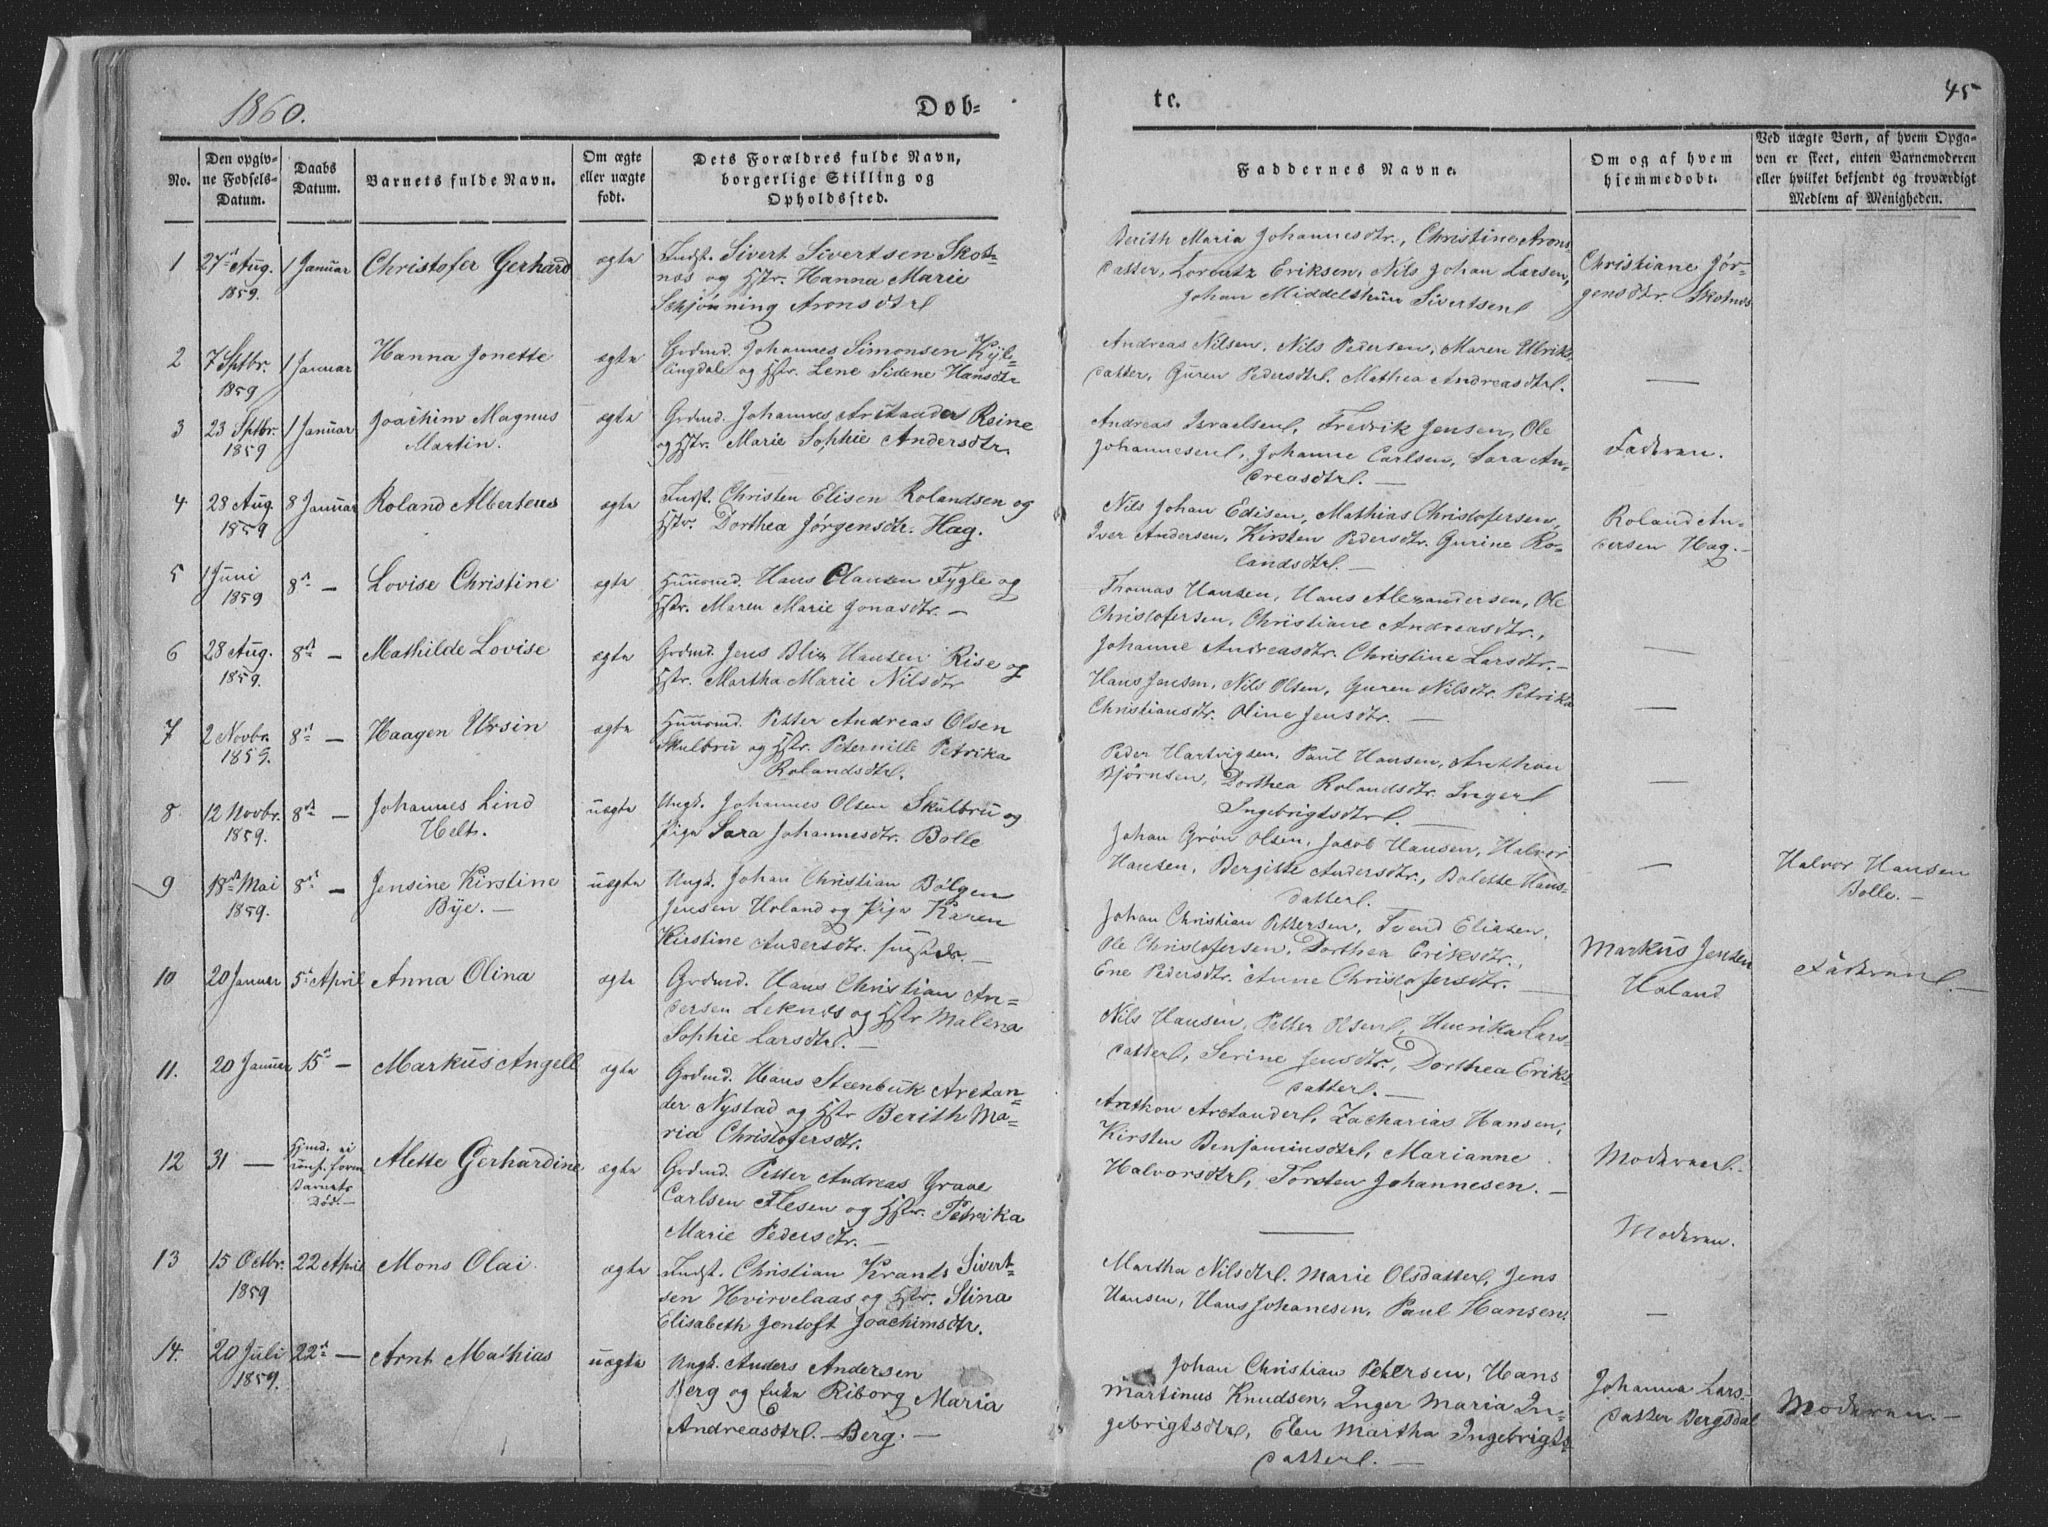 1860.
Døb-
te.
45
No.
Den opgiv-
ne Fødsels-
Datum.
Daabs
Datum.
Barnets fulde Navn.
Om ægte
eller uægte
født.
Dets Forældres fulde Navn,
borgerlige Stilling og
Opholdssted.
Faddernes Navne.
Om og af hvem
hjemmedøbt.
Ved uægte Børn, af hvem Opga-
ven er skeet, enten Barnemoderen
eller hvilket bekjendt og troværdigt
Medlem af Menigheden.
1
27de Aug.
1859.
1 Januar
Christofer Gerhard
ægte
Indst. Sivert Sivertsen Skot-
næs og Hstr. Hanna Marie
Schjønning Aronsdtr
Berith Maria Johannesdtr., Christine Arons-
datter, Lorentz Eriksen, Nils Johan Larsen,
Johan Middelthun Sivertsen
Christiane Jør-
gensdtr. Skotnæs
2
7 Sptbr.
1859
1 Januar
Hanna Jonette
ægte
Grdmd. Johannes Simonsen Kyl-
lingdale og Hstr. Lene Sidene Hansdtr
Andreas Nilsen, Nils Pedersen, Maren Ulriks-
datter, Guren Pedersdtr. Mathea Andreasdtr.
—
3
23 Sptbr.
1859
1 Januar
Joachim Magnus
Martin.
ægte
Grdmd. Johannes Arctander Reine
og Hstr. Marie Sophie Andersdtr
Andreas Israelsen, Fredrik Jensen, Ole
Johannesen, Johanne Carlsen, Sara An-
dreasdtr. —
Faderen.
4
28 Aug.
1859
8 Januar
Roland Alberteus
ægte
Indst. Christen Elisen Rolandsen og
Hstr. Dorthea Jørgensdtr. Hag.
Nils Johan Edisen, Mathias Christofersen,
Iver Andersen, Kirsten Pedersdtr. Gurine Ro-
landsdtr. —
Roland An-
dersen Hag. —
5
1 Juni
1859
8de —
Lovise Christine
ægte
Huusmd. Hans Olausen Fygle og
Hstr. Maren Marie Jonasdtr. —
Thomas Hansen, Hans Alexandersen, Ole
Christofersen, Christiane Andreasdtr.,
Johanne Andreasdtr. Christine Larsdtr. —
—
6
28 Aug.
1859.
8de —
Mathilde Lovise
ægte
Grdmd. Jens Blix Hansen Rise og
Hstr. Martha Marie Nilsdtr
Hans Jensen, Nils Olsen, Guren Nilsdtr. Petrika
Christiansdtr. Oline Jensdtr. —
—
7
2 Novbr.
1859.
8de —
Haagen Ursin
ægte
Huusmd. Petter Andreas Olsen
Skulbru og Hstr. Peternille Petrika
Rolandsdtr.
Peder Hartvigsen, Paul Hansen, Anthon
Bjørnsen, Dorthea Rolandsdtr. Inger
Ingebrigtsdtr. —
—
8
12 Novbr.
1859.
8de —
Johannes Lind
Helts.
uægte
Ungk. Johannes Olsen Skulbru og
Pige Sara Johannesdtr. Bolle
Johan Grøn Olsen, Jacob Hansen, Halvor
Hansen, Bergitte Andersdtr., Bolette Hans-
datter. —
—
Halvor Hansen
Bolle. —
9
18de Mai
1859.
8de —
Jensine Kirstine
Bye. —
uægte
Ungk. Johan Christian Bølgen
Jensen Holand og Pige Karen
Kirstine Andersdtr. —
Johan Christian Pettersen, Svend Eliasen,
Ole Christofersen, Dorthea Eriksdtr.,
Ene Pedersdtr. Anne Christofersdtr. —
Markus Jensen
Holand
Faderen —
10
20 Januar
5te April
Anna Olina
ægte
Grdmd. Hans Christian An-
dersen Leknæs og Hstr Malena
Sophie Larsdtr. —
Nils Hansen, Petter Olsen, Henrika Lars-
datter, Serine Jensdtr., Dorthea Eriks-
datter. —
11.
20 Januar
15de —
Markus Angell
ægte
Grdmd. Hans Steenbuk Arctan-
der Nystad og Hstr Berith Ma-
ria Christofersdtr.
Anthon Arctander, Zacharias Hansen,
Kirsten Benjaminsdtr, Marianne
Halvorsdtr, Torsten Johannesen. —
Moderen.
12
31 —
Hjmd. ei
conf. form.
Barnets
Død. —
Alette Gerhardine
ægte
Grdmd. Petter Andreas Grave
Carlsen Flesen og Hstr. Petrika
Marie Pedersdtr. —
—
Moderen.
13
15 Octbr.
1859
22 April
Mons Olai
ægte
Indst. Christian Krantz Sivert-
sen Hvirvelaas og Hstr. Stina
Elisabeth Jentoft Joachimsdtr.
Martha Nilsdtr. Marie Olsdatter, Jens
Hansen, Hans Johanesen, Paul Hansen.
—
14.
20 Juli
1859.
22de —
Arnt Mathias
uægte
Ungk. Anders Andersen
Berg og Enke Riborg Maria
Andreasdtr. — Berg. —
Johan Christian Petersen, Hans
Martinus Knudsen, Inger Maria In-
gebrigtsdtr, Elen Martha Ingebrigts-
datter. —
Johanna Lars-
datter Bergsdal
Moderen. —